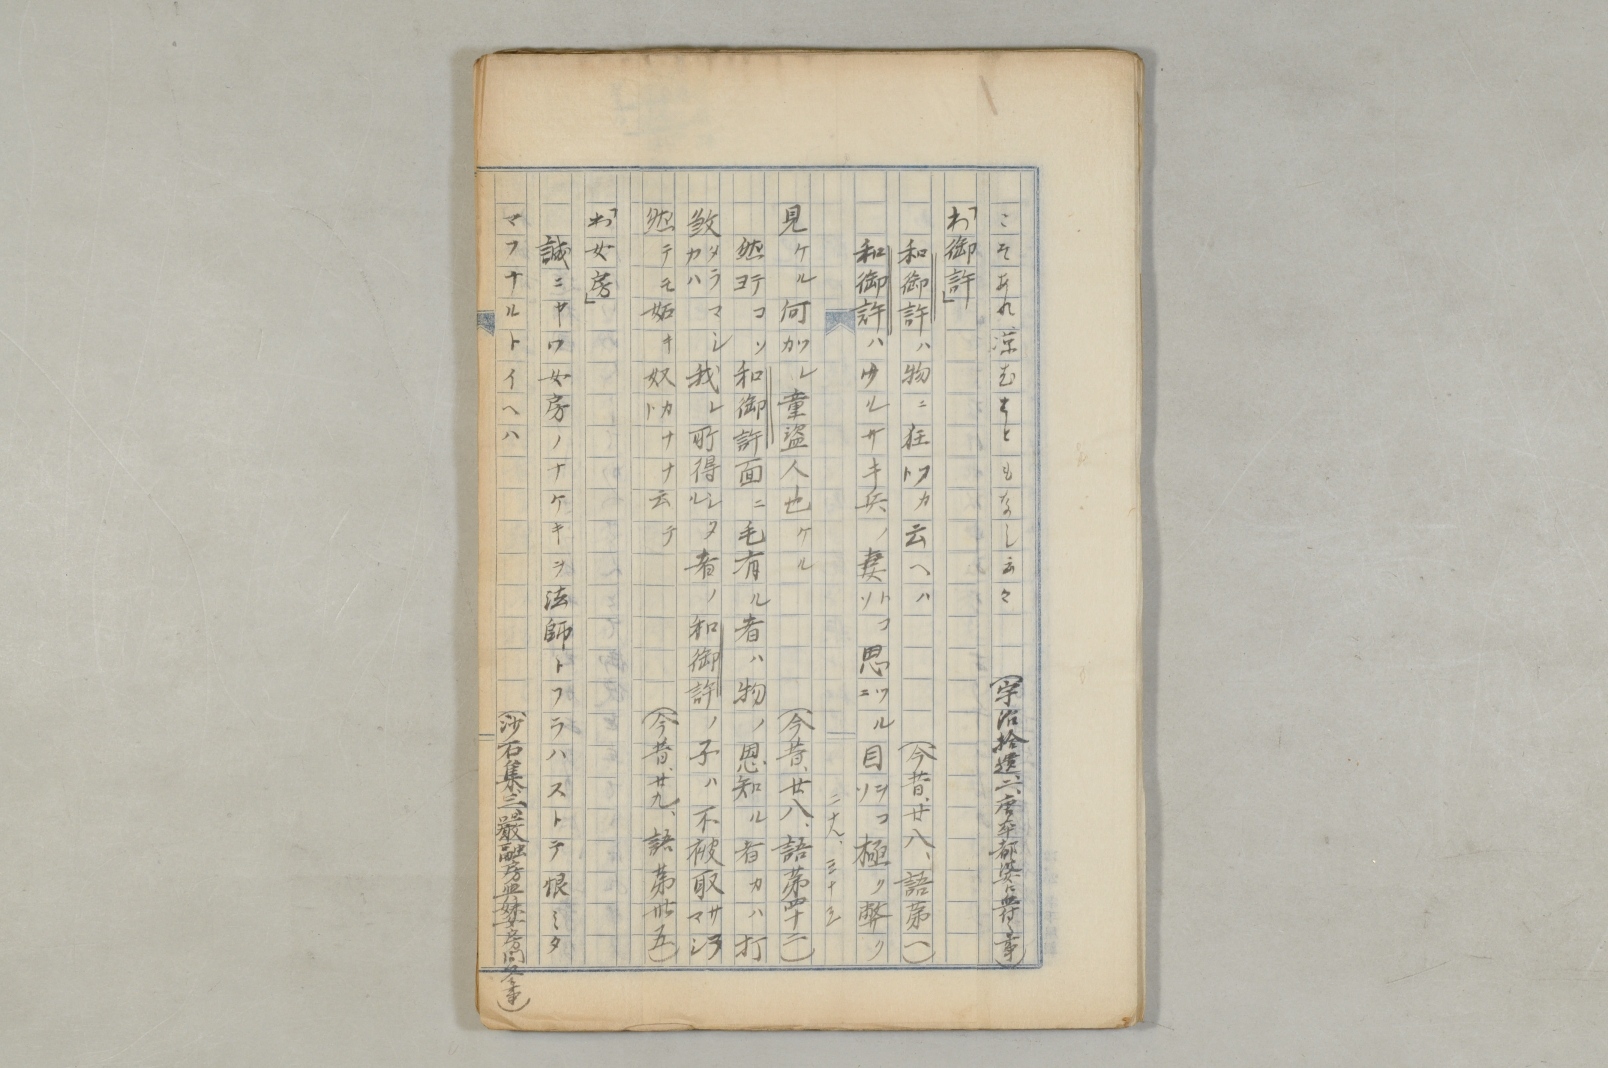 こそあれ凉むまともなし云々
(宇治拾遺二、唐卒都婆に血付く事)
「わ御許」
和御許ハ物ニ狂フカト云ヘハ
(今昔、廿八、語第一)
和御許ハゆルサキ兵ノ妻トコソ思ツルニ目ヲコソ極ク弊ク
見ケル何カツレ童盗人也ケル
(今昔、廿八、語第四十二)
然ヨテコソ和御許面ニ毛有ル者ハ物ノ恩知ル者カハ打
敦タラマシカハ我レ所得シタル者ノ和御許ノ子ハ不被取サラマシ
然テモ妬キ奴カナトナ云テ
(今昔、廿九、語第卅五)
「わ女房」
誠ニヤワ女房ノナケキヲ法師トフラハストテ恨ミタ
マフナルトイヘハ
(沙石集、三、嚴融房與妹女房問答事)